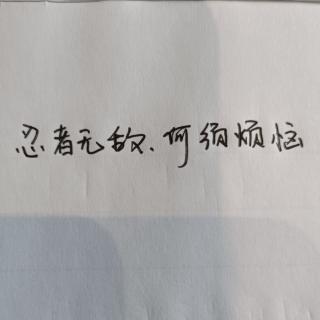 忍者无敌、何须烦恼